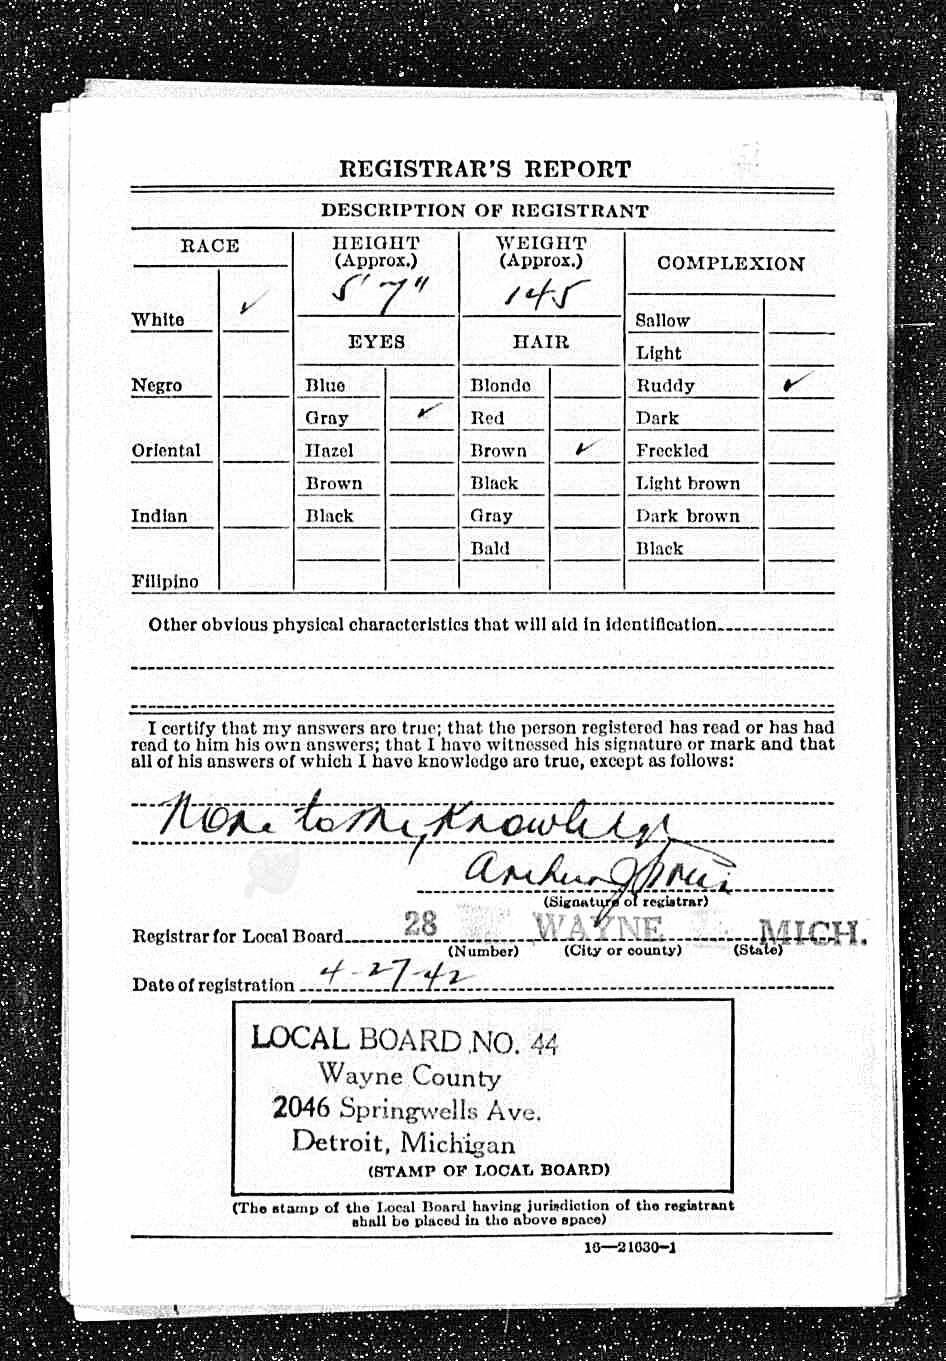 REGISTRAR'S REPORT
DESCRIPTION OF REGISTRANT
RACE
HEIGHT
(Approx.)
5' 7"
WEIGHT
(Approx.)
145
COMPLEXION
White ✓
Negro
Oriental
Indian
Filipino
EYES
Blue
Gray ✓
Hazel
Brown
Black
HAIR
Blonde
Red
Brown ✓
Black
Gray
Bald
Sallow
Light
Ruddy ✓
Dark
Freckled
Light brown
Dark brown
Black
Other obvious physical characteristics that will aid in identification
I certify that my answers are true; that the person registered has read or has had
read to him his own answers; that I have witnessed his signature or mark and that
all of his answers of which I have knowledge are true, except as follows:
None to my Knowledge
Arthur J
(Signature of registrar)
Registrar for Local Board 28 WAYNE MICH.
(Number) (City or county) (State)
Date of registration 4-27-42
LOCAL BOARD NO. 44
Wayne County
2046 Springwells Ave.
Detroit, Michigan
(STAMP OF LOCAL BOARD)
(The stamp of the Local Board having jurisdiction of the registrant
shall be placed in the above space)
16—21630-1